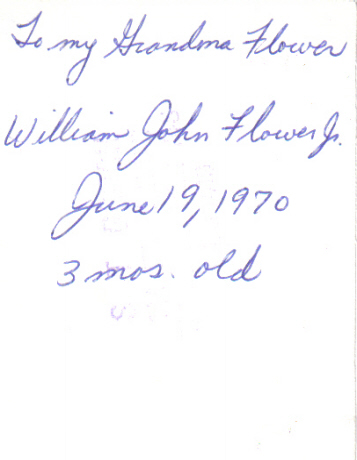 To my Grandma Flower
William John Flower Jr.
June 19, 1970
3 mos. old